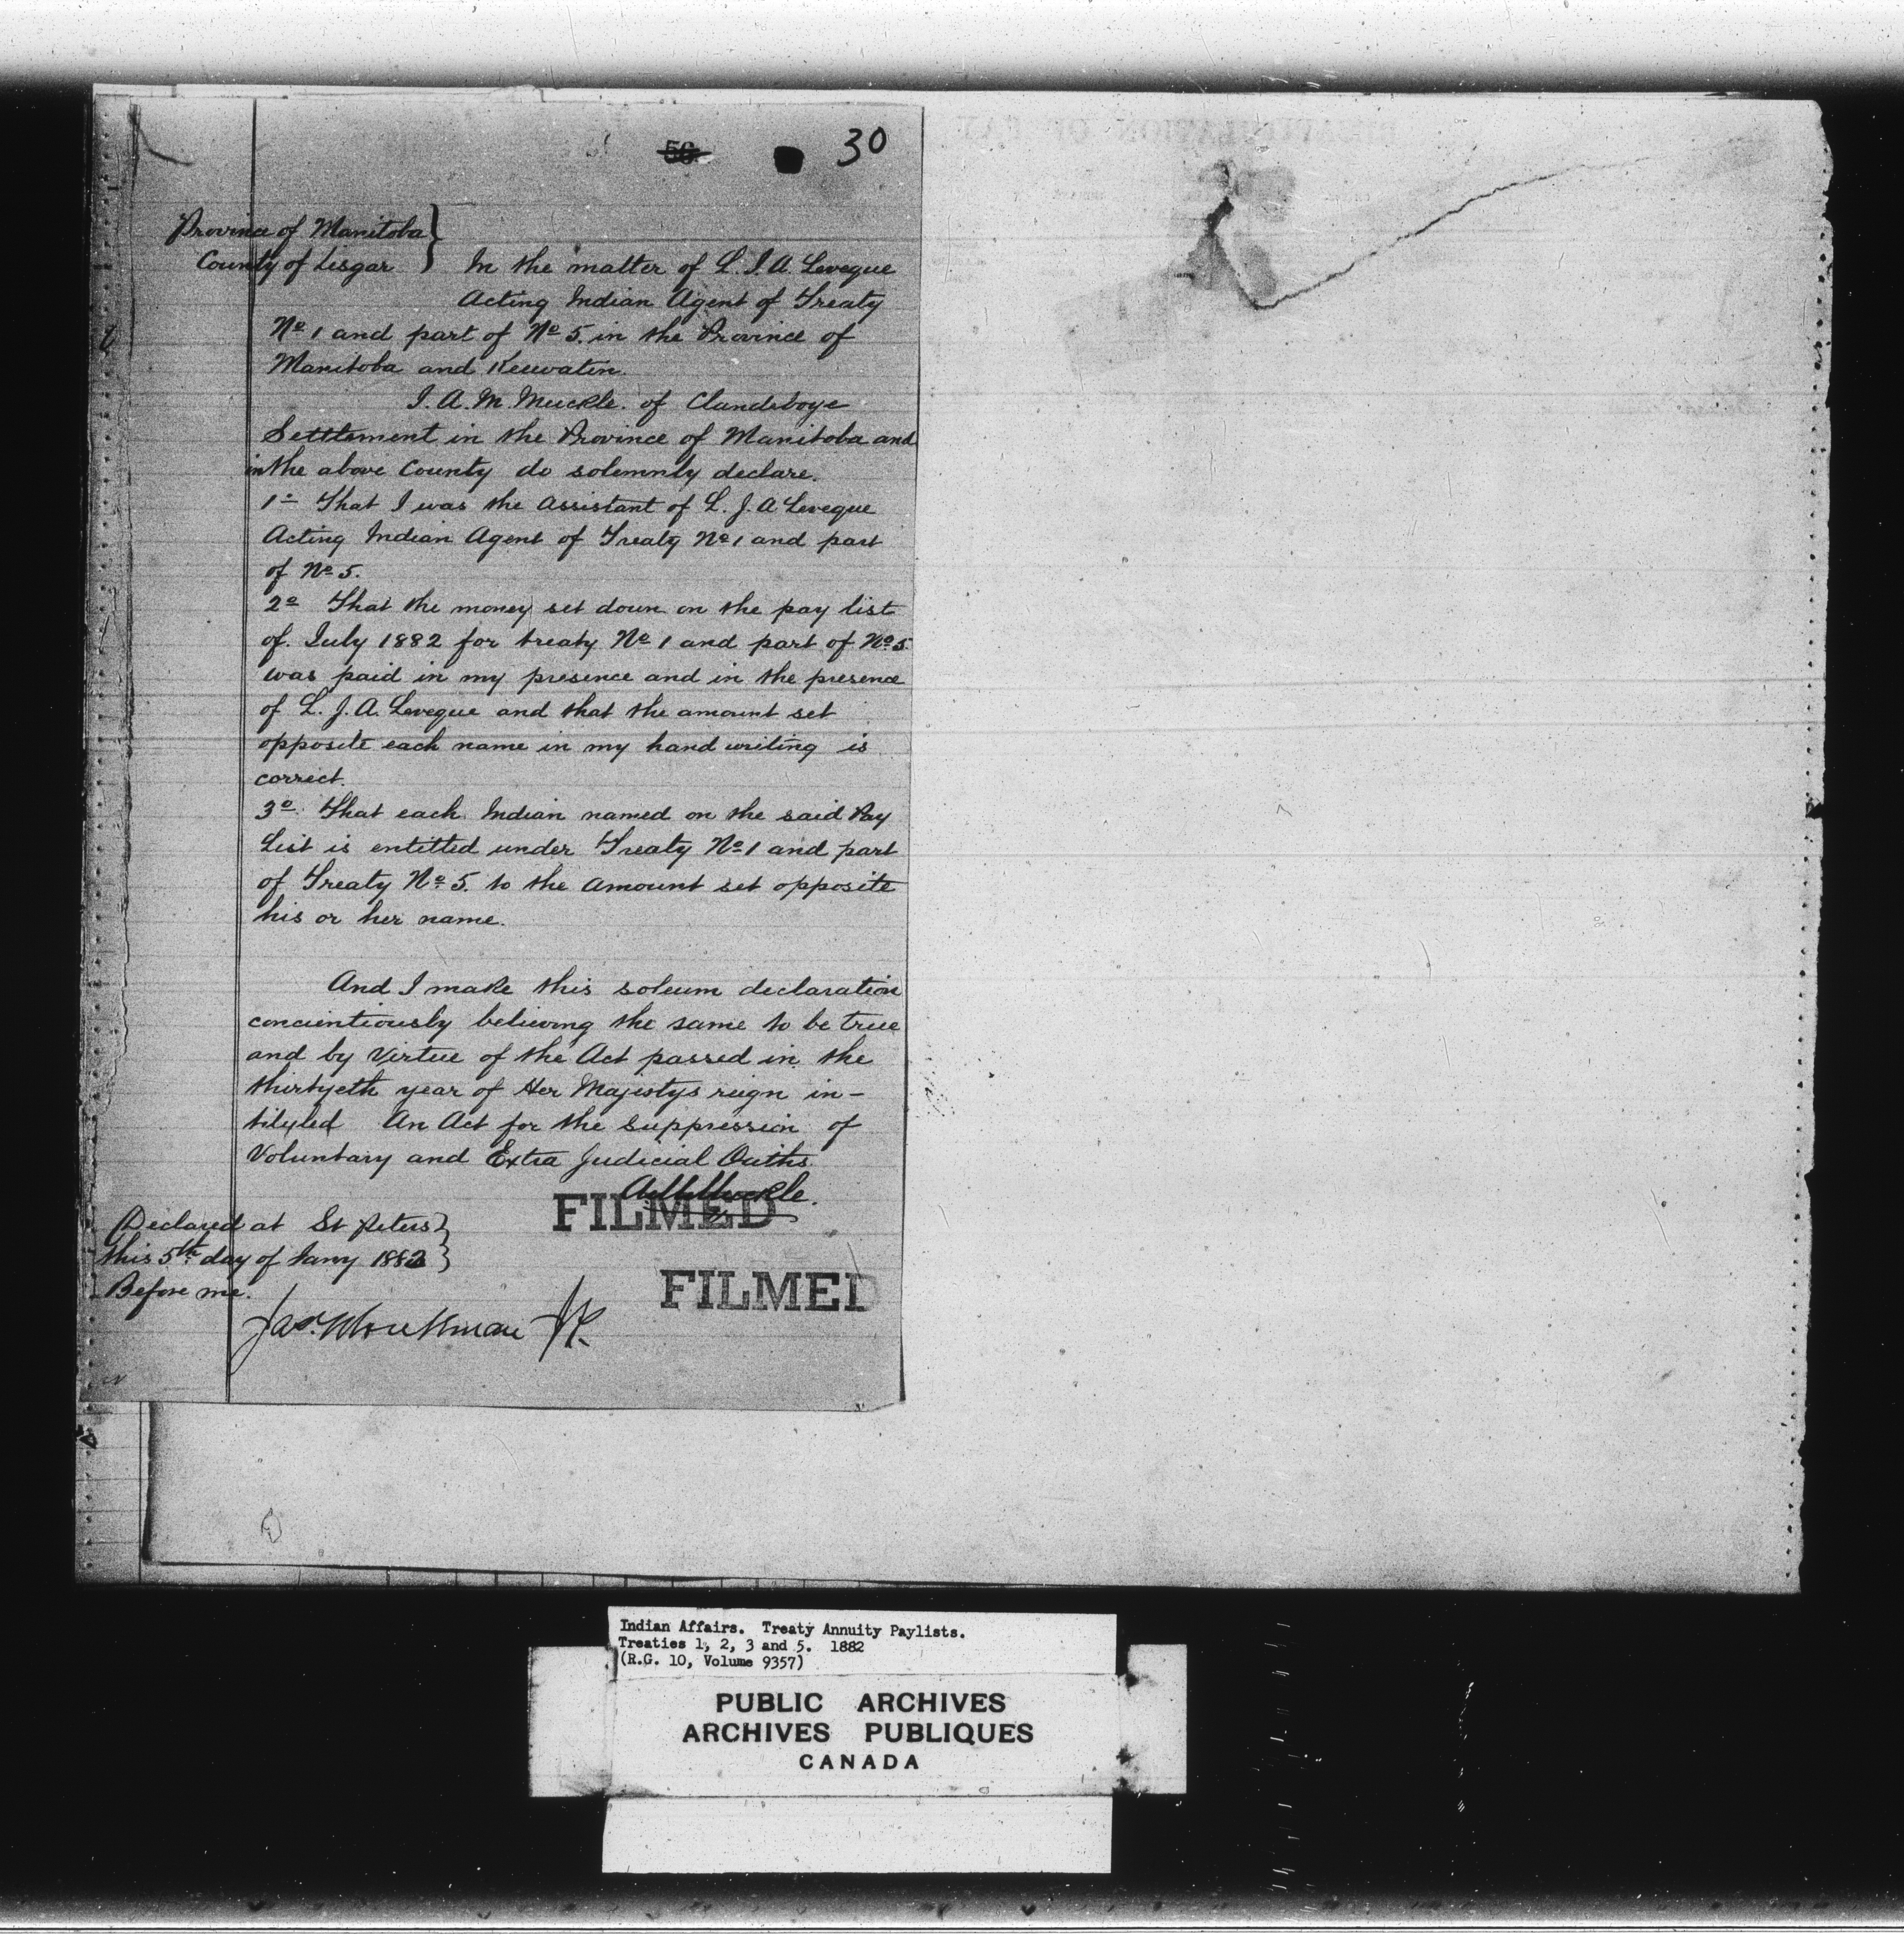 56
30
Province of Manitoba
County of Lisgar } In the matter of L. J. A. Leveque
Acting Indian Agent of Treaty
No 1 and part of No 5. in the Province of
Manitoba and Keewatin.
I. A. M. Muckle. of Clandeboye
Settlement in the Province of Manitoba and
in the above County do solemnly declare.
1o That I was the Assistant of L. J. A Leveque
Acting Indian Agent of Treaty No 1 and part
of No 5.
2o That the money set down on the pay list
of July 1882 for treaty No 1 and part of No 5
was paid in my presence and in the presence
of L. J. A. Leveque and that the amount set
opposite each name in my hand writing is
correct.
3o That each Indian named on the said Pay
List is entitled under Treaty No 1 and part
of Treaty No 5. to the amount set opposite
his or her name.
And I make this soleum declaration
concientiously believing the same to be true
and by Virtue of the Act passed in the
thirtyeth year of Her Majestys reign in-
tilyled An Act for the suppression of
Voluntary and Extra Judicial Oaths.
A M Muckle.
FILMED
Declared at St Peters
this 5th day of Jany 1883
Before me.
FILMED
Jas. Workman JP.
Indian Affairs. Treaty Annuity Paylists.
Treaties 1, 2, 3 and 5. 1882
(R.G. 10, Volume 9357)
PUBLIC ARCHIVES
ARCHIVES PUBLIQUES
CANADA